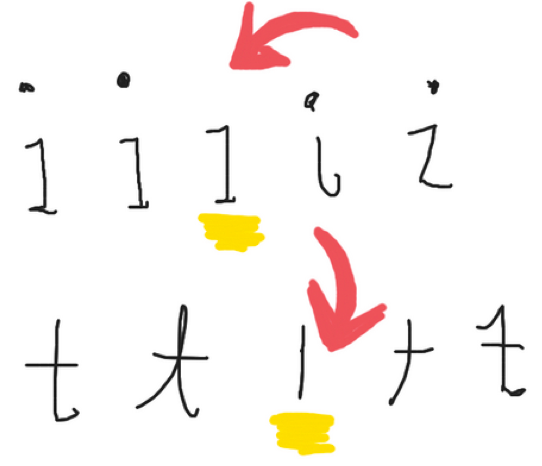 i i ı i i
t t l t t